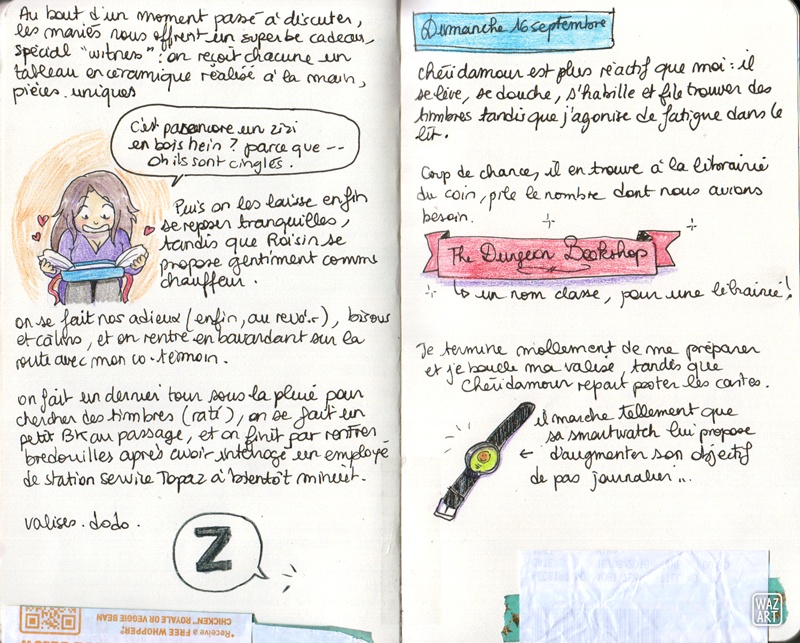 Au bout d'un moment passé à discuter,
les mariés nous offrent un superbe cadeau,
spécial "witness" : on reçoit chacune un
tableau en céramique réalisé à la main,
pièces uniques
C'est pas encore un zizi
en bois hein ? parce que --
oh ils sont cinglés.
Puis on les laisse enfin
se reposer tranquilles,
tandis que Raisin se
propose gentiment comme
chauffeur.
on se fait nos adieux (enfin, au revoir), bisous
et câlins, et on rentre en bavardant sur la
route avec mon co-témoin.
on fait un dernier tour sous la pluie pour
chercher des timbres (raté), on se fait un
petit BK au passage, et on finit par rentrer
bredouilles après avoir un employé
de station service Topaz à bientôt minuit.
valises. dodo.
Z
*Receive a FREE WHOPPER®
CHICKEN™ ROYALE OR VEGGIE BEAN
Dimanche 16 septembre
chéridamour est plus réactif que moi : il
se lève, se douche, s'habille et file trouver des
timbres tandis que j'agonise de fatigue dans le
lit.
Coup de chance, il en trouve à la librairie
du coin, pile le nombre dont nous avions
besoin.
The Dungeon Bookshop
↳ un nom classe, pour une librairie !
Je termine mollement de me préparer
et je boucle ma valise, tandis que
Chéridamour repart poster les cartes.
il marche tellement que
sa smartwatch lui propose
← d'augmenter son objectif
de pas journalier...
WAZ
ART